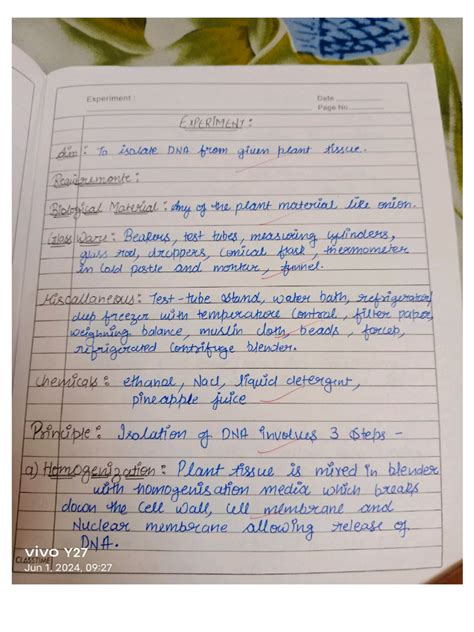 Experiment :
Date
Page No.
EXPERIMENT :
Aim : To isolate DNA from given plant tissue.
Requirements :
Biological Material : Any of the plant material like onion.
Glass Ware : Beakers, test tubes, measuring cylinders,
glass rod, droppers, conical flask, thermometer
in cold pastle and mortar, funnel.
Miscallaneous : Test-tube stand, water bath, refrigerator/
deep freezer with temperature control, filter paper
weighning balance, muslin cloth, beads, forcep,
refrigerated centrifuge blender.
Chemicals : ethanol, Nacl, liquid detergent,
pineapple juice
Principle : Isolation of DNA involves 3 steps -
a) Homogenization : Plant tissue is mixed in blender
with homogenisation media which breaks
down the cell wall, cell membrane and
Nuclear membrane allowing release of
DNA.
vivo Y27
Jun 1, 2024, 09:27
CLASSTIME